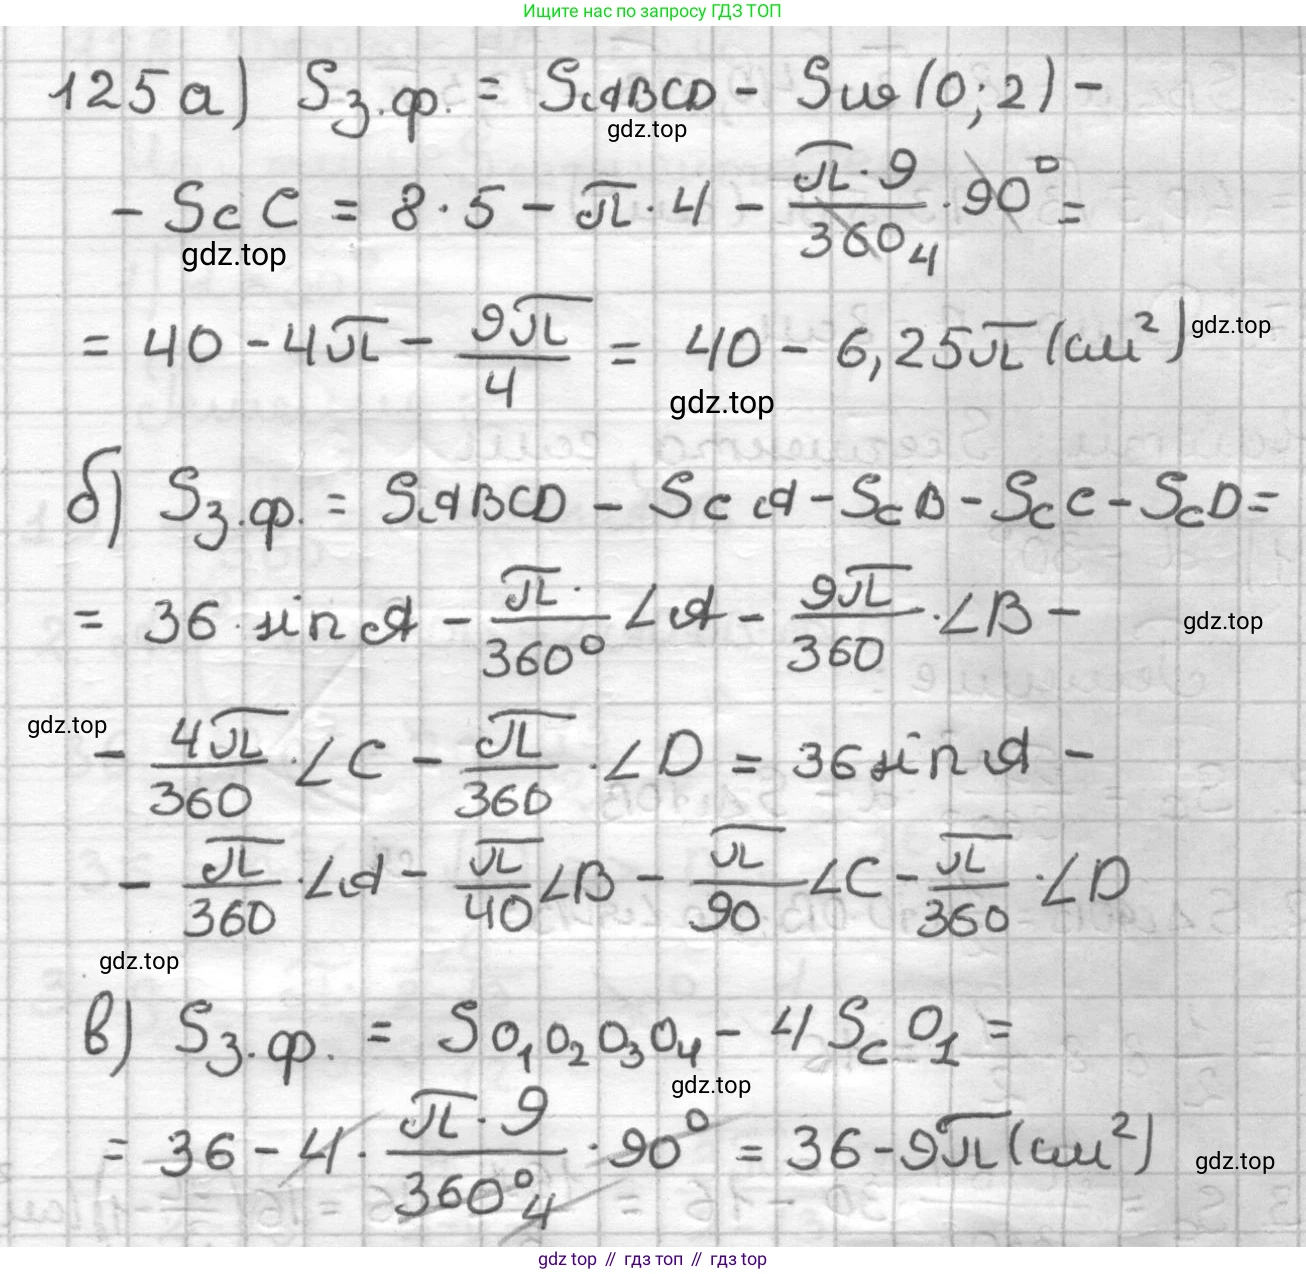 Ищите нас по запросу ГДЗ ТОП
125 а) Sз.ф. = SABCD - Sш(0;2) -
gdz.top
- Sс C = 8·5 - π·4 - π·9/360 4 · 90° =
gdz.top
= 40 - 4π - 9π/4 = 40 - 6,25π (см²)
gdz.top
gdz.top
б) Sз.ф. = SABCD - Sс A - Sс B - Sс C - Sс D =
= 36·sin A - π·/360° ∠A - 9π/360 · ∠B -
gdz.top
gdz.top
- 4π/360 · ∠C - π/360 · ∠D = 36 sin A -
- π/360 · ∠A - π/40 ∠B - π/90 ∠C - π/360 · ∠D
gdz.top
в) Sз.ф. = SO₁O₂O₃O₄ - 4Sс O₁ =
gdz.top
= 36 - 4 · π·9/360° 4 · 90° = 36 - 9π (см²)
gdz.top
gdz top // гдз топ // гдз top